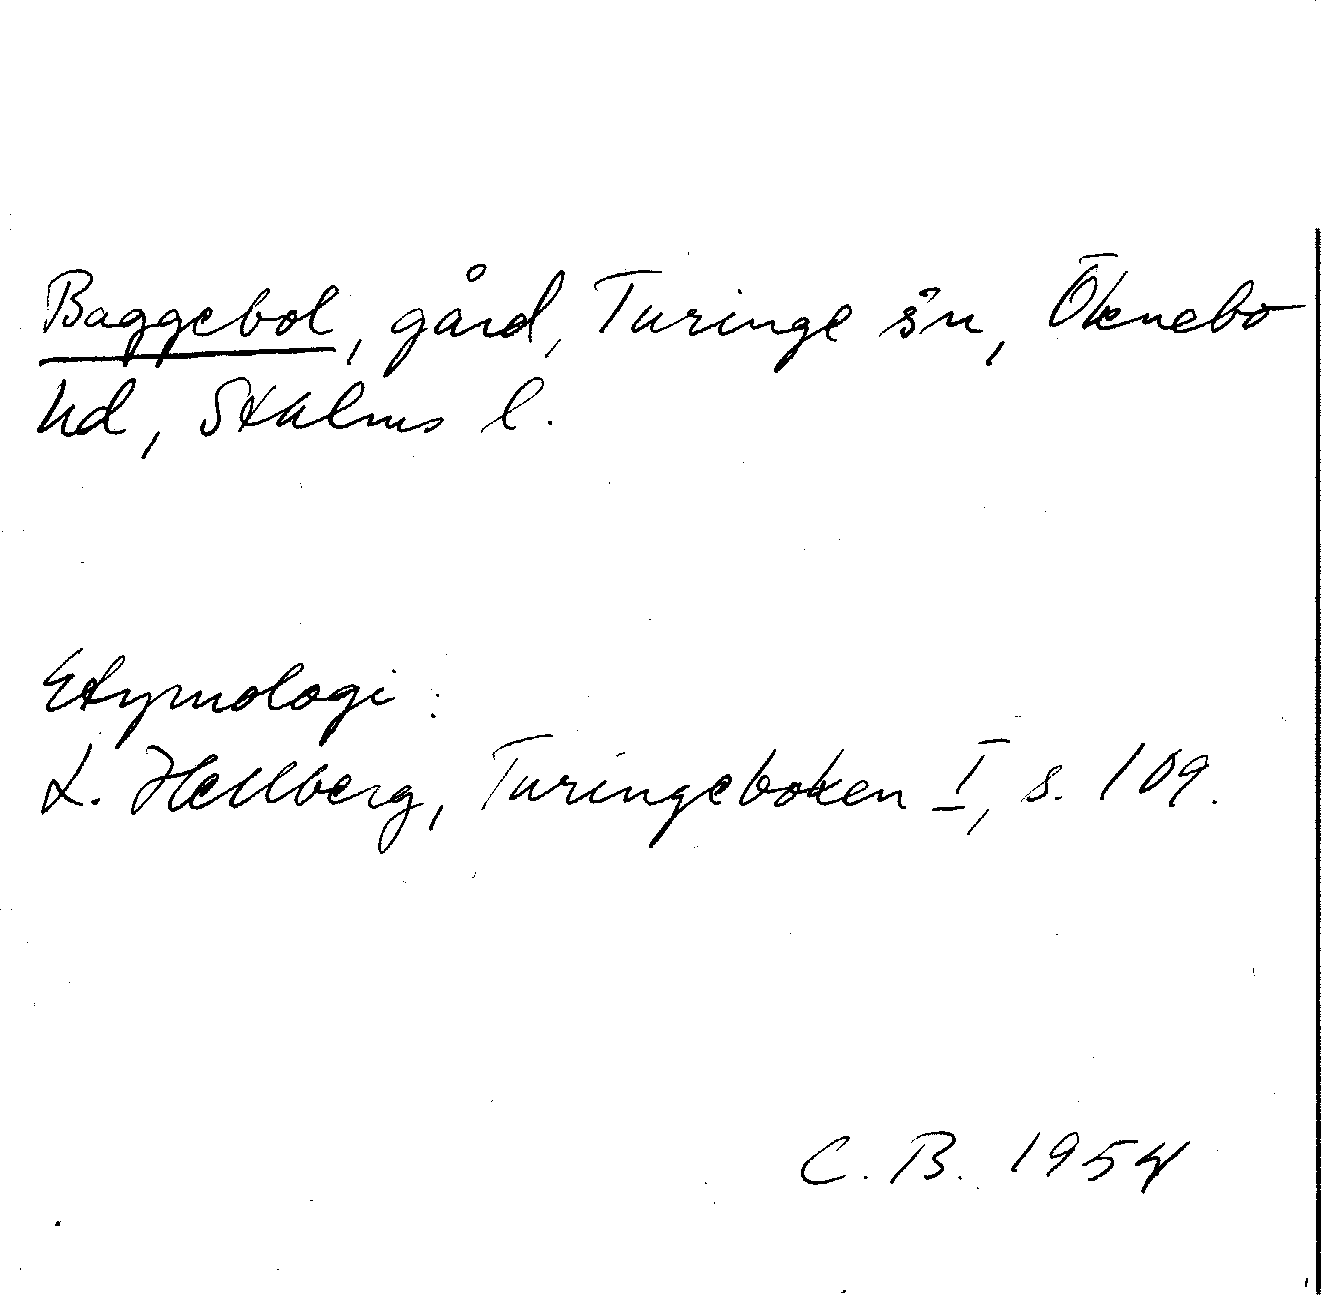 Baggebol, gård, Turinge sn, Öknebo
hd, Sthlms l.
Etymologi:
L. Hellberg, Turingeboken I, s. 109.
C. B. 1954